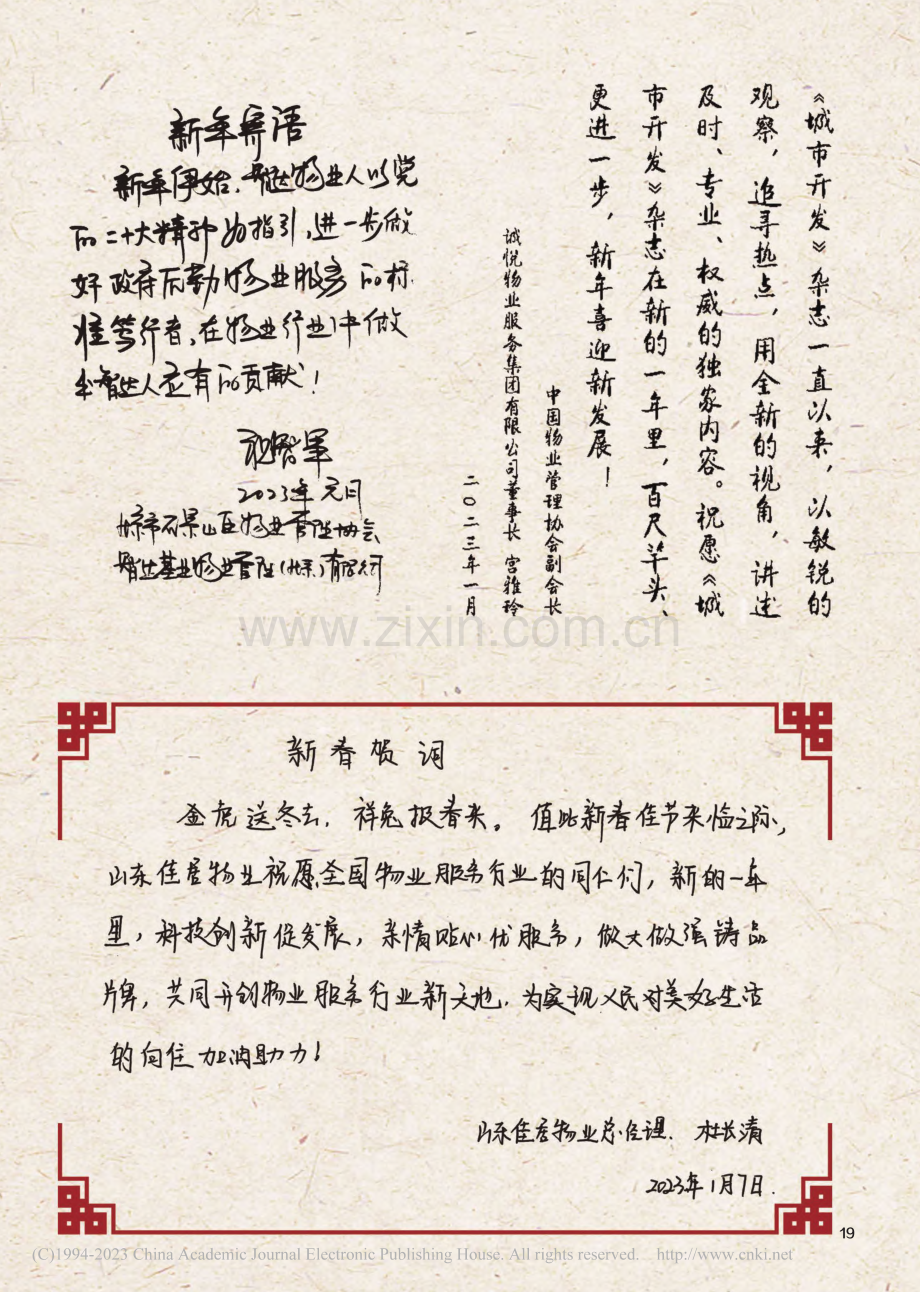 新年寄语
新年伊始,智达物业人以党
的二十大精神为指引,进一步做
好政府后勤物业服务的标
准笃行者,在物业行业中做
出智达人应有的贡献!
2023年元日
北京市石景山区物业管理协会
智达基业物业管理(北京)有限公司
《城市开发》杂志一直以来,以敏锐的
观察,追寻热点,用全新的视角,讲述
及时、专业、权威的独家内容。祝愿《城
市开发》杂志在新的一年里,百尺竿头、
更进一步,新年喜迎新发展!
中国物业管理协会副会长
诚悦物业服务集团有限公司董事长 宫雅玲
二〇二三年一月
www.zixin.com.cn
新春贺词
金虎送冬去,祥兔报春来。值此新春佳节来临之际,
山东佳居物业祝愿全国物业服务行业的同仁们,新的一年
里,科技创新促发展,亲情贴心优服务,做大做强铸品
牌,共同开创物业服务行业新天地,为实现人民对美好生活
的向往加油助力!
山东佳居物业总经理 杜长清
2023年1月7日.
19
(C)1994-2023 China Academic Journal Electronic Publishing House. All rights reserved. http://www.cnki.net